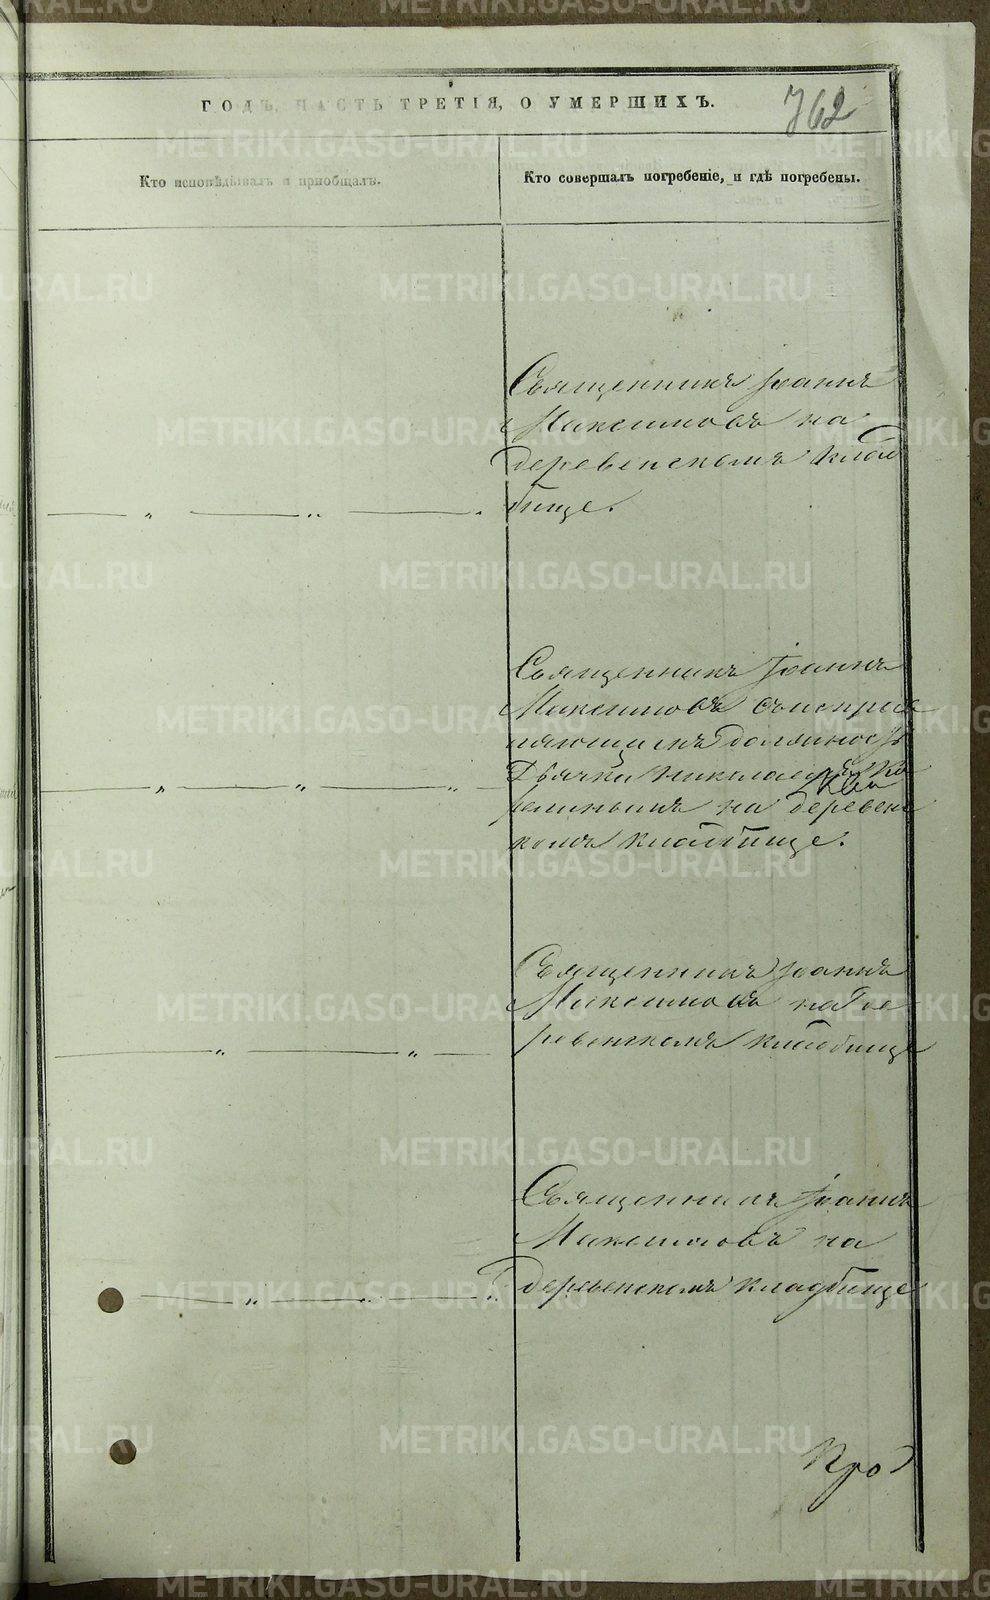 ГОДЪ, ЧАСТЬ ТРЕТІЯ, О УМЕРШИХЪ.
762
Кто исповѣдывалъ и пріобщалъ.
Кто совершалъ погребеніе, и гдѣ погребены.
Священникъ Іоаннъ
Максимовъ на
деревенскомъ клад
бище.
Священникъ Іоаннъ
Максимовъ съ исправ
ляющимъ должность
Дьячка Николаемъ
на деревенс
комъ кладбище.
Священникъ Іоаннъ
Максимовъ на де
ревенскомъ кладбище
Священникъ Іоаннъ
Максимовъ на
деревенскомъ кладбище
METRIKI.GASO-URAL.RU